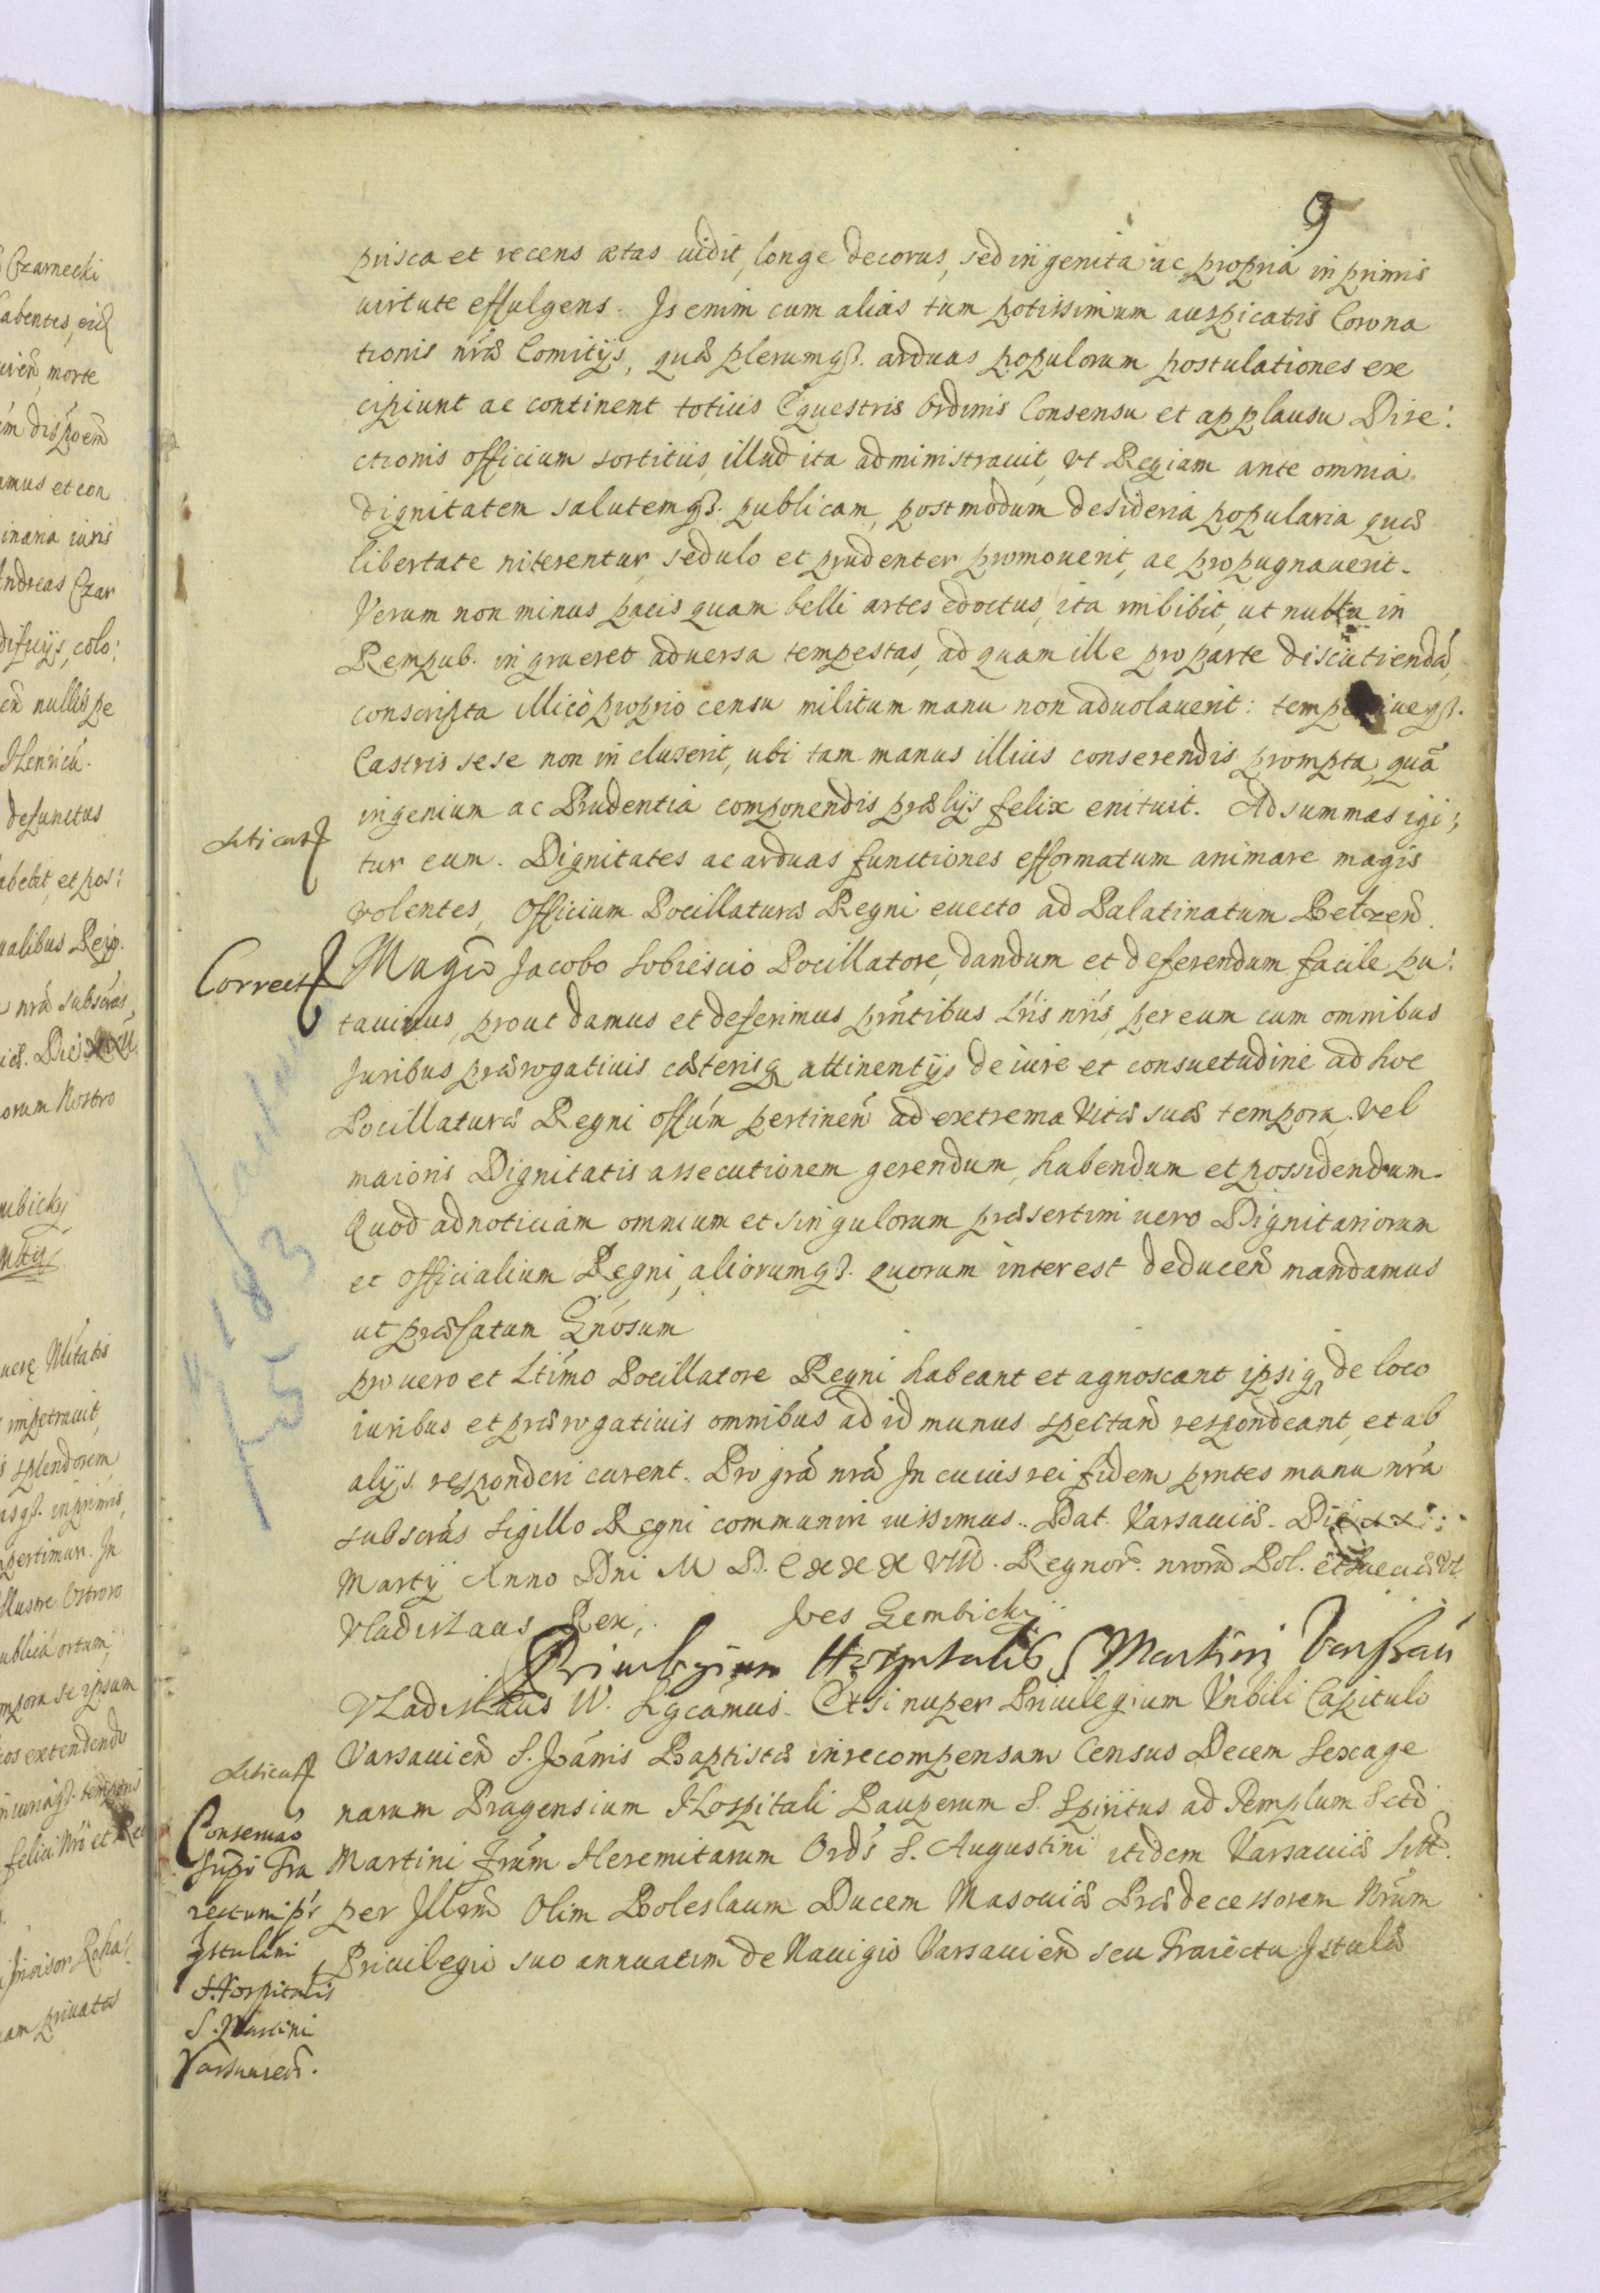 9
prisca et recens ætas uidit, longe decorus, sed ingenita ac propria in primis
uirtute effulgens. Is enim cum alias tum potissimum auspicatis Corona
tionis nræ Comitijs, quæ plerumq3. arduas populorum postulationes exe
cipiunt ac continent totius Equestris Ordinis Consensu et applausu Dire:
ctionis officium sortitus, illud ita administrauit, vt Regiam ante omnia
dignitatem salutemq3. publicam, postmodum desideria popularia quæ
libertate niterentur, sedulo et prudenter promouerit, ac propugnauerit.
Verum non minus pacis quam belli artes edoctus, ita imbibit, ut nulla in
Rempub. ingrueret aduersa tempestas, ad quam ille pro parte discutiendá,
conscripta illicò proprio censu militum manu non aduolauerit:
Castris sese non incluserit, ubi tam manus illius conserendis prompta, quã
ingenium ac Prudentia componendis prælijs felix enituit. Ad summas igi:
tur eum. Dignitates ac arduas functiones efformatum animare magis
volentes, Officium Pocillaturæ Regni euecto ad Palatinatum Belzeñ.
Correct
Magco Jacobo Sobiescio Pocillatore, dandum et deferendum facile pu:
tauimus, prout damus et deferimus pñtibus Lris nris, per eum cum omnibus
Juribus prærogatiuis cæterisq attinentijs de iure et consuetudine ad hoc
Pocillaturæ Regni offúm pertineñ ad extrema Vitæ suæ tempora, vel
maioris Dignitatis assecutionem gerendum, habendum et possidendum.
Quod ad noticiam omnium et singulorum præsertim uero Dignitariorum
et Officialium Regni, aliorumq3. quorum interest deduceñ mandamus
ut præfatum Gñosum
pro uero et Ltimo Pocillatore Regni habeant et agnoscant ipsiq de loco
iuribus et prærogatiuis omnibus ad id munus spectañ respondeant, et ab
alijs responderi curent. Pro grã nrã In cuius rei fidem pñtes manu nrá
subscrás Sigillo Regni communiri iussimus. Dat. Varsauiæ.
Martij Anno Dni M D. C xxx VIII. Regnor. nrorũ Pol.
Vladislaus Rex,
Joes Gembicky
Priuilegium Hospitalis S Martini Varsau
Vladislaus IV. Sigcamus. Etsi nuper Priuilegium Vnbili Capitulo
Varsauieñ S. Joánis Baptistæ in recompensam Census Decem Sexage
narum Pragensium Hospitali Pauperum S. Spiritus ad Templum Scti
Martini Frúm Heremitarum Ordís S. Augustini itidem Varsauiæ
per Illrem Olim Boleslaum Ducem Masouiæ Prædecessorem Nrúm
Priuilegio suo annuatim de Nauigio Varsauieñ seu Traiectu Istulæ
Conseruaó
Supr Tra
rectum
ystulini
Hospitalis
S. Martini
Varsauieñ.